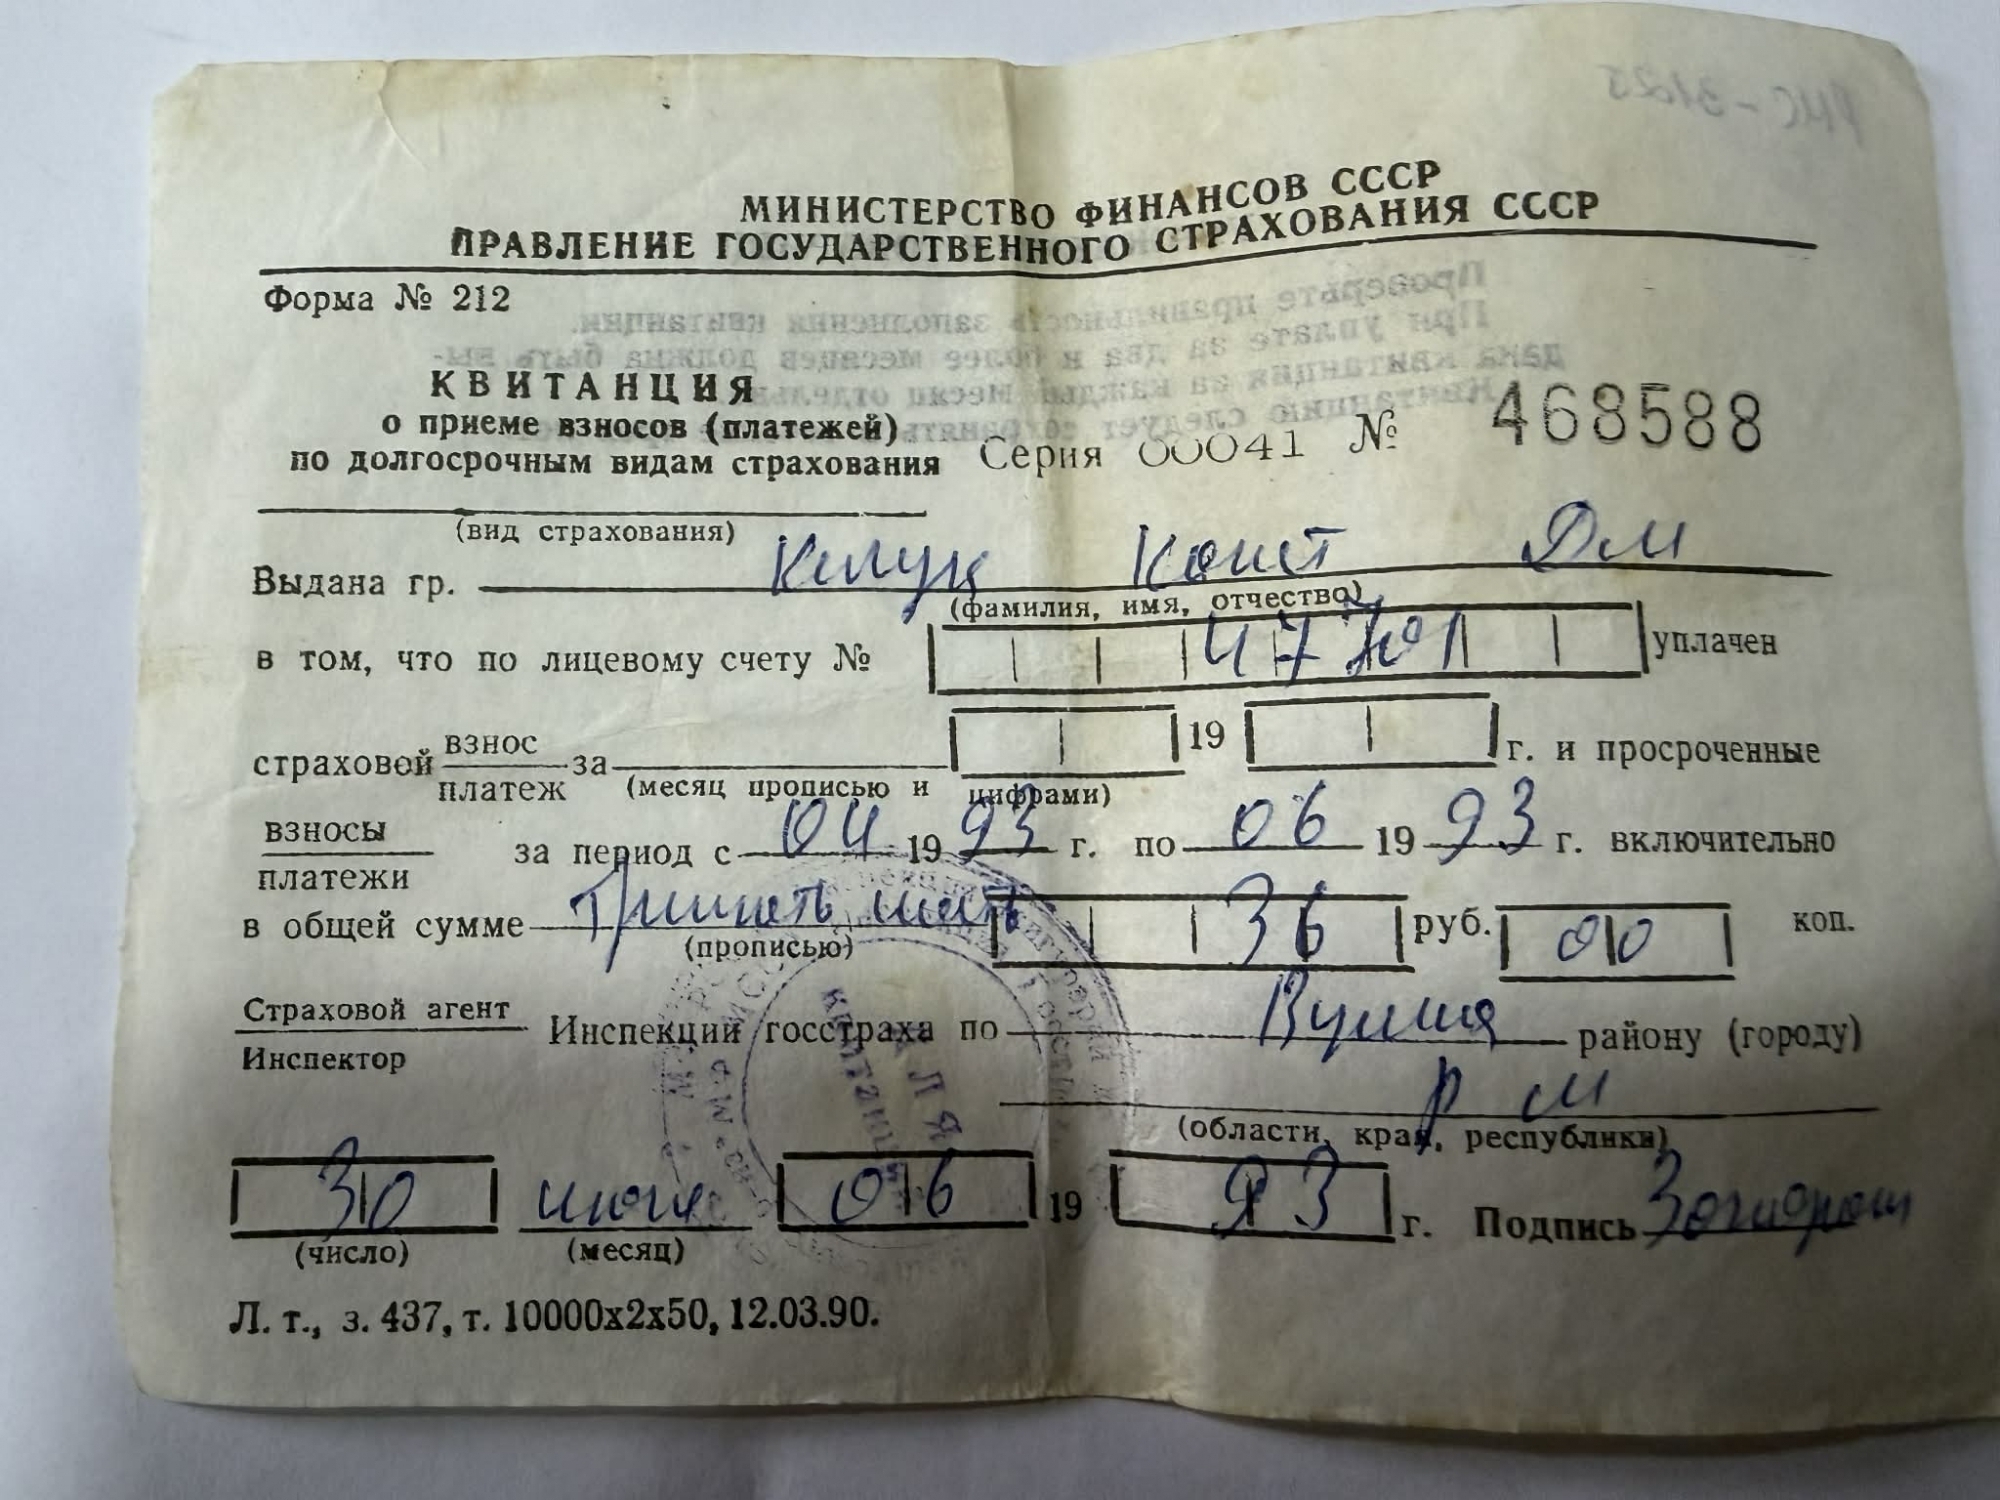 МИНИСТЕРСТВО ФИНАНСОВ СССР
ПРАВЛЕНИЕ ГОСУДАРСТВЕННОГО СТРАХОВАНИЯ СССР
Форма № 212
КВИТАНЦИЯ
о приеме взносов (платежей)
по долгосрочным видам страхования Серия 00041 № 468588
(вид страхования)
Выдана гр. Конст Дм
(фамилия, имя, отчество)
в том, что по лицевому счету № уплачен
страховой взнос за 19 г. и просроченные
платеж (месяц прописью и цифрами)
взносы за период с 04 19 93 г. по 06 19 93 г. включительно
платежи
в общей сумме Тридцать шесть 36 руб. 00 коп.
(прописью)
Страховой агент Инспекции госстраха по району (городу)
Инспектор
Р М
(области, края, республики)
30 июня 06 19 93 г. Подпись
(число) (месяц)
Л. т., з. 437, т. 10000х2х50, 12.03.90.